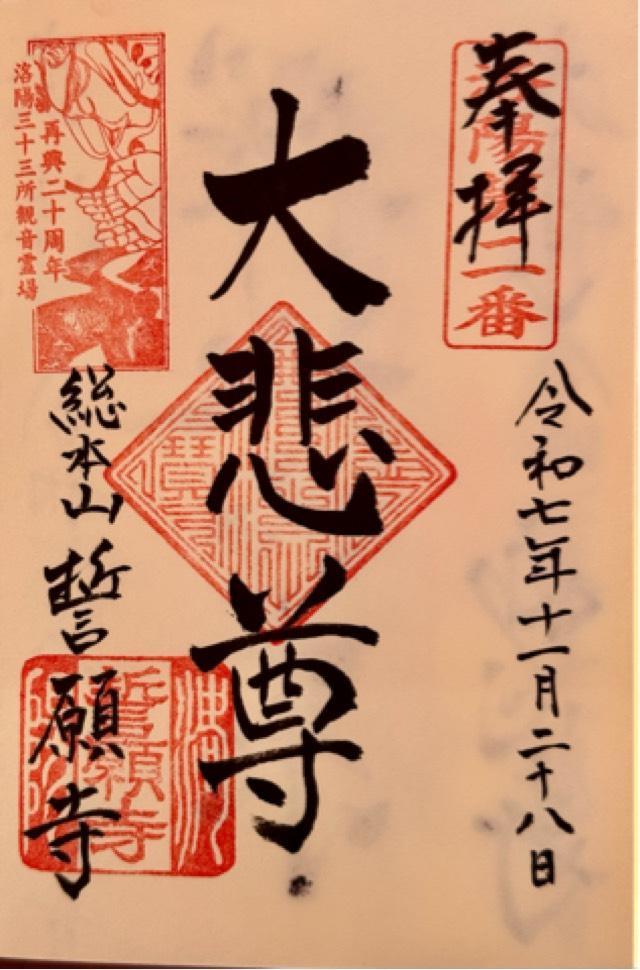 奉拝
洛陽第二番
令和七年十一月二十八日
大悲尊
再興二十周年
洛陽三十三所観音霊場
総本山 誓願寺
誓願寺